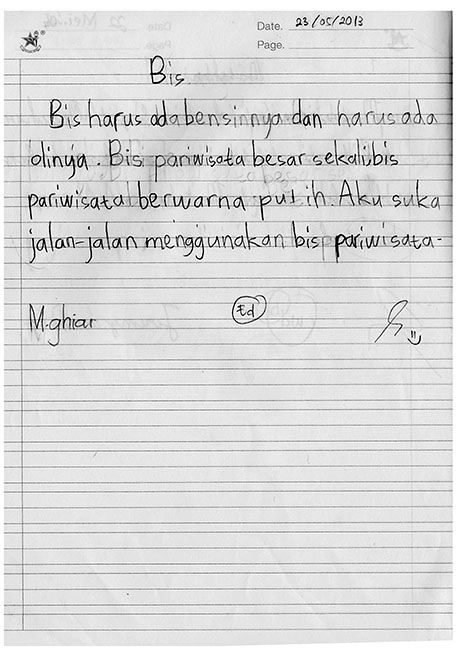 Date. 23/05/2013
Page.
Bis
Bis harus ada bensinnya dan harus ada
olinya. Bis pariwisata besar sekali, bis
pariwisata berwarna putih. Aku suka
jalan-jalan menggunakan bis pariwisata.
M.ghiar
Ed